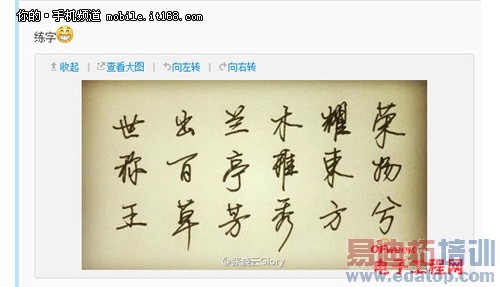 你的·手机频道 mobile.it168.com
练字
收起 | 查看大图 | 向左转 | 向右转
荣物兮
耀東方
木雅秀
兰亭芳
出百草
世称王
@张晓云Glory
OFweek
易迪拓培训
电子工程网
http://www.edatop.com